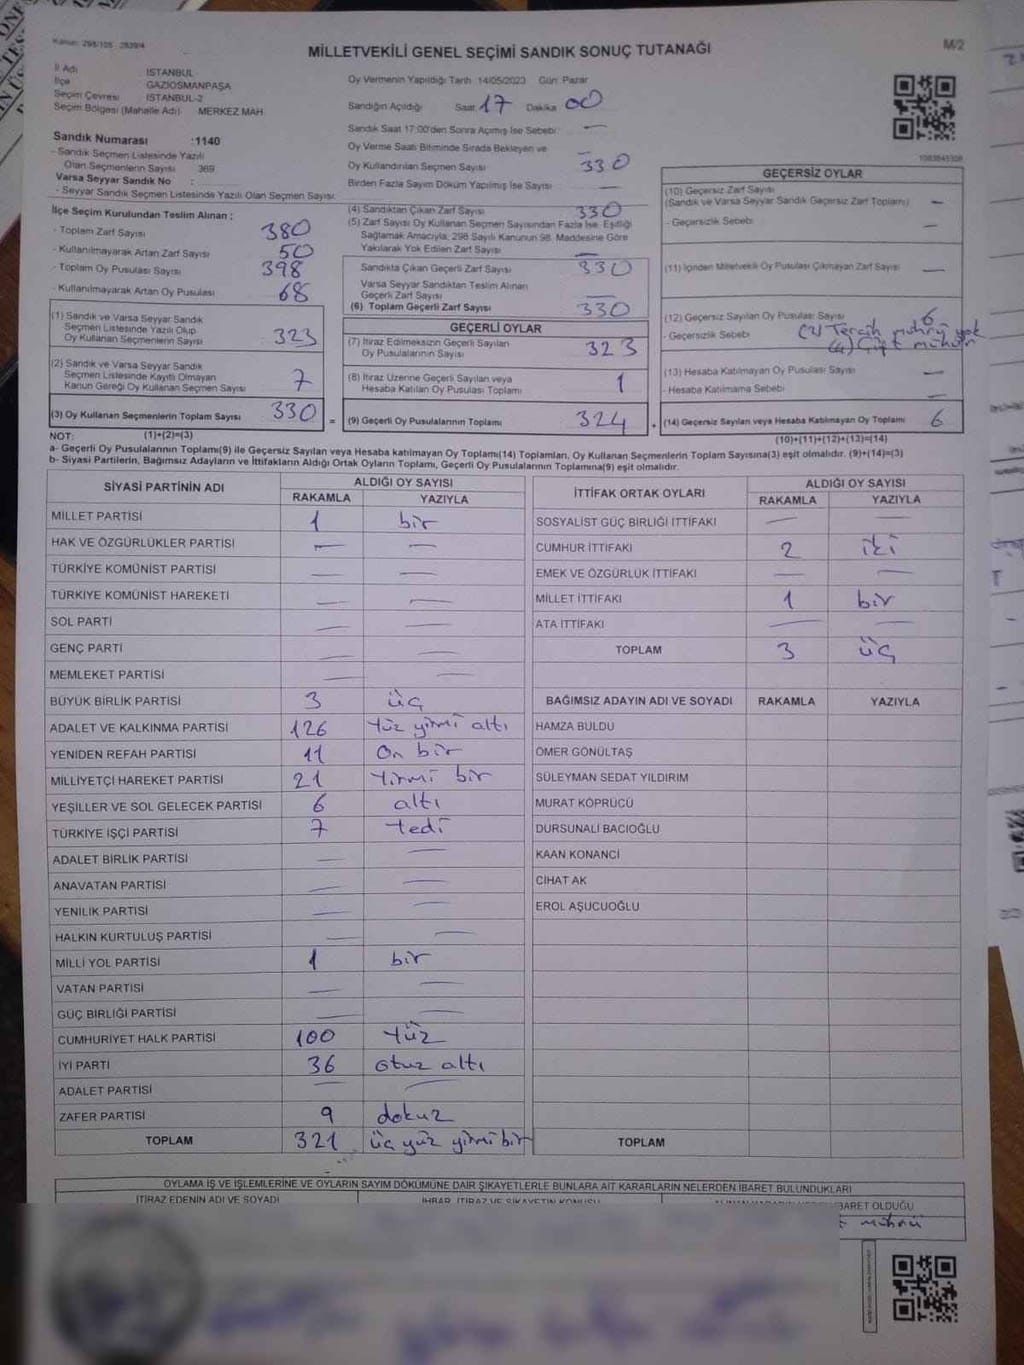 Kanun: 298/105 2839/4
MİLLETVEKİLİ GENEL SEÇİMİ SANDIK SONUÇ TUTANAĞI
M/2
İl Adı İSTANBUL
İlçe GAZİOSMANPAŞA
Seçim Çevresi İSTANBUL-2
Seçim Bölgesi (Mahalle Adı) MERKEZ MAH.
Oy Vermenin Yapıldığı Tarih 14/05/2023 Gün: Pazar
Sandığın Açıldığı Saat 17 Dakika 00
Sandık Saat 17:00'den Sonra Açılmış İse Sebebi —
Oy Verme Saati Bitiminde Sırada Bekleyen ve
Oy Kullandırılan Seçmen Sayısı 330
Birden Fazla Sayım Döküm Yapılmış İse Sayısı —
Sandık Numarası :1140
- Sandık Seçmen Listesinde Yazılı
Olan Seçmenlerin Sayısı 369
Varsa Seyyar Sandık No :
- Seyyar Sandık Seçmen Listesinde Yazılı Olan Seçmen Sayısı:
İlçe Seçim Kurulundan Teslim Alınan :
- Toplam Zarf Sayısı 380
- Kullanılmayarak Artan Zarf Sayısı 50
- Toplam Oy Pusulası Sayısı 398
- Kullanılmayarak Artan Oy Pusulası 68
(1) Sandık ve Varsa Seyyar Sandık
Seçmen Listesinde Yazılı Olup
Oy Kullanan Seçmenlerin Sayısı 323
(2) Sandık ve Varsa Seyyar Sandık
Seçmen Listesinde Kayıtlı Olmayan
Kanun Gereği Oy Kullanan Seçmen Sayısı 7
(3) Oy Kullanan Seçmenlerin Toplam Sayısı 330 =
(4) Sandıktan Çıkan Zarf Sayısı 330
(5) Zarf Sayısı Oy Kullanan Seçmen Sayısından Fazla İse, Eşitliği
Sağlamak Amacıyla, 298 Sayılı Kanunun 98. Maddesine Göre
Yakılarak Yok Edilen Zarf Sayısı —
Sandıkta Çıkan Geçerli Zarf Sayısı 330
Varsa Seyyar Sandıktan Teslim Alınan
Geçerli Zarf Sayısı —
(6) Toplam Geçerli Zarf Sayısı 330
GEÇERLİ OYLAR
(7) İtiraz Edilmeksizin Geçerli Sayılan
Oy Pusulalarının Sayısı 323
(8) İtiraz Üzerine Geçerli Sayılan veya
Hesaba Katılan Oy Pusulası Toplamı 1
(9) Geçerli Oy Pusulalarının Toplamı 324 +
GEÇERSİZ OYLAR
(10) Geçersiz Zarf Sayısı
(Sandık ve Varsa Seyyar Sandık Geçersiz Zarf Toplamı) —
- Geçersizlik Sebebi —
(11) İçinden Milletvekili Oy Pusulası Çıkmayan Zarf Sayısı —
(12) Geçersiz Sayılan Oy Pusulası Sayısı 6
- Geçersizlik Sebebi (2) Tercih mührü yok
(4) Çift mühür
(13) Hesaba Katılmayan Oy Pusulası Sayısı —
- Hesaba Katılmama Sebebi —
(14) Geçersiz Sayılan veya Hesaba Katılmayan Oy Toplamı 6
(10)+(11)+(12)+(13)=(14)
NOT: (1)+(2)=(3)
a- Geçerli Oy Pusulalarının Toplamı(9) ile Geçersiz Sayılan veya Hesaba katılmayan Oy Toplamı(14) Toplamları, Oy Kullanan Seçmenlerin Toplam Sayısına(3) eşit olmalıdır. (9)+(14)=(3)
b- Siyasi Partilerin, Bağımsız Adayların ve İttifakların Aldığı Ortak Oyların Toplamı, Geçerli Oy Pusulalarının Toplamına(9) eşit olmalıdır.
SİYASİ PARTİNİN ADI ALDIĞI OY SAYISI
RAKAMLA YAZIYLA
MİLLET PARTİSİ 1 bir
HAK VE ÖZGÜRLÜKLER PARTİSİ — —
TÜRKİYE KOMÜNİST PARTİSİ — —
TÜRKİYE KOMÜNİST HAREKETİ — —
SOL PARTİ — —
GENÇ PARTİ — —
MEMLEKET PARTİSİ — —
BÜYÜK BİRLİK PARTİSİ 3 üç
ADALET VE KALKINMA PARTİSİ 126 Yüz yirmi altı
YENİDEN REFAH PARTİSİ 11 On bir
MİLLİYETÇİ HAREKET PARTİSİ 21 Yirmi bir
YEŞİLLER VE SOL GELECEK PARTİSİ 6 altı
TÜRKİYE İŞÇİ PARTİSİ 7 Yedi
ADALET BİRLİK PARTİSİ — —
ANAVATAN PARTİSİ — —
YENİLİK PARTİSİ — —
HALKIN KURTULUŞ PARTİSİ — —
MİLLİ YOL PARTİSİ 1 bir
VATAN PARTİSİ — —
GÜÇ BİRLİĞİ PARTİSİ — —
CUMHURİYET HALK PARTİSİ 100 Yüz
İYİ PARTİ 36 Otuz altı
ADALET PARTİSİ — —
ZAFER PARTİSİ 9 dokuz
TOPLAM 321 üç yüz yirmi bir
İTTİFAK ORTAK OYLARI ALDIĞI OY SAYISI
RAKAMLA YAZIYLA
SOSYALİST GÜÇ BİRLİĞİ İTTİFAKI — —
CUMHUR İTTİFAKI 2 iki
EMEK VE ÖZGÜRLÜK İTTİFAKI — —
MİLLET İTTİFAKI 1 bir
ATA İTTİFAKI — —
TOPLAM 3 üç
BAĞIMSIZ ADAYIN ADI VE SOYADI RAKAMLA YAZIYLA
HAMZA BULDU
ÖMER GÖNÜLTAŞ
SÜLEYMAN SEDAT YILDIRIM
MURAT KÖPRÜCÜ
DURSUNALİ BACIOĞLU
KAAN KONANCI
CİHAT AK
EROL AŞUCUOĞLU
TOPLAM
OYLAMA İŞ VE İŞLEMLERİNE VE OYLARIN SAYIM DÖKÜMÜNE DAİR ŞİKAYETLERLE BUNLARA AİT KARARLARIN NELERDEN İBARET BULUNDUKLARI
İTİRAZ EDENİN ADI VE SOYADI
İHBAR, İTİRAZ VE ŞİKAYETİN KONUSU
İBARET OLDUĞU
mührü